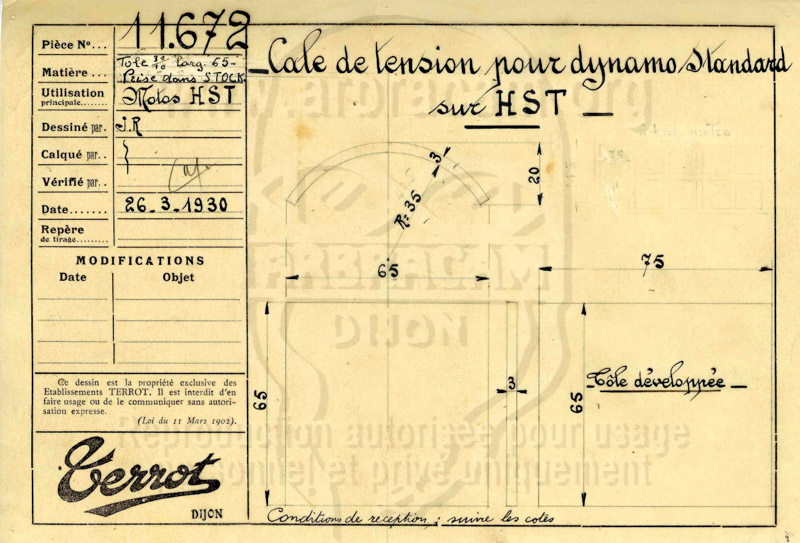 Pièce No... 11.672
Matière... Tôle 30/10 larg. 65-
Prise dans STOCK
Utilisation
principale........ Motos HST
Dessiné par. J.R
Calqué par.. }
Vérifié par..
Date....... 26-3-1930
Repère
de tirage.......
MODIFICATIONS
Date Objet
Ce dessin est la propriété exclusive des
Etablissements TERROT. Il est interdit d'en
faire usage ou de le communiquer sans autori-
sation expresse.
(Loi du 11 Mars 1902).
Terrot
DIJON
Cale de tension pour dynamo Standard
sur HST
3
R=35
20
65
75
65
3
65
Tôle développée
Conditions de reception : suivre les cotes
DIJON
Reproduction autorisée pour usage
personnel et privé uniquement